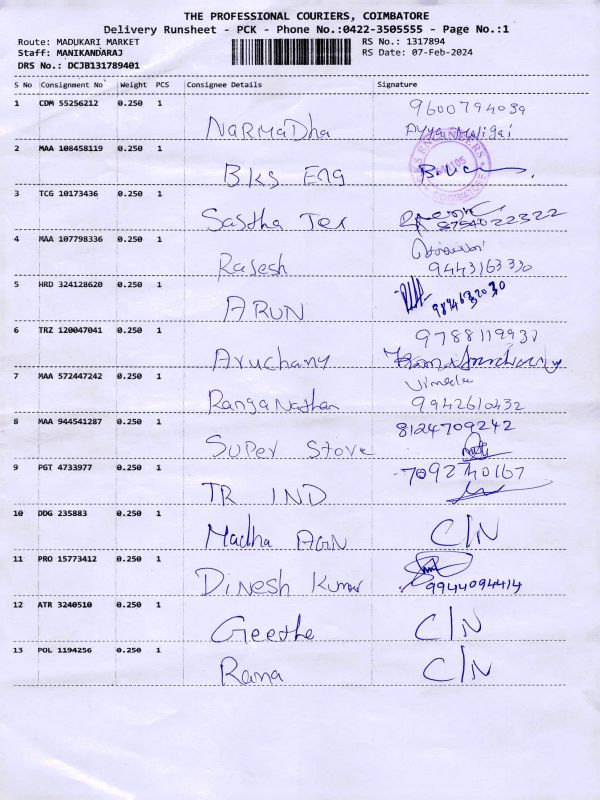 THE PROFESSIONAL COURIERS, COIMBATORE
Delivery Runsheet - PCK - Phone No.:0422-3505555 - Page No.:1
Route: MADUKARI MARKET RS No.: 1317894
Staff: MANIKANDARAJ RS Date: 07-Feb-2024
DRS No.: DCJB131789401
S No Consignment No Weight PCS Consignee Details Signature
1 CDM 55256212 0.250 1 9600794039
Narmadha Ayya Maligai
2 MAA 108458119 0.250 1
BKS Eng
3 TCG 10173436 0.250 1
Sastha Tex 8754022322
4 MAA 107798336 0.250 1
Rajesh 9443163330
5 HRD 324128620 0.250 1
ARUN 9894632030
6 TRZ 120047041 0.250 1 9788119937
Aruchamy
7 MAA 572447242 0.250 1 Vimala
Ranganathan 9942610432
8 MAA 944541287 0.250 1 8124709242
Super Store
9 PGT 4733977 0.250 1 7092740167
TR IND
10 DDG 235883 0.250 1
Madha Agn C/N
11 PRO 15773412 0.250 1
Dinesh Kumar 9944094414
12 ATR 3240510 0.250 1
Geetha C/N
13 POL 1194256 0.250 1
Rama C/N